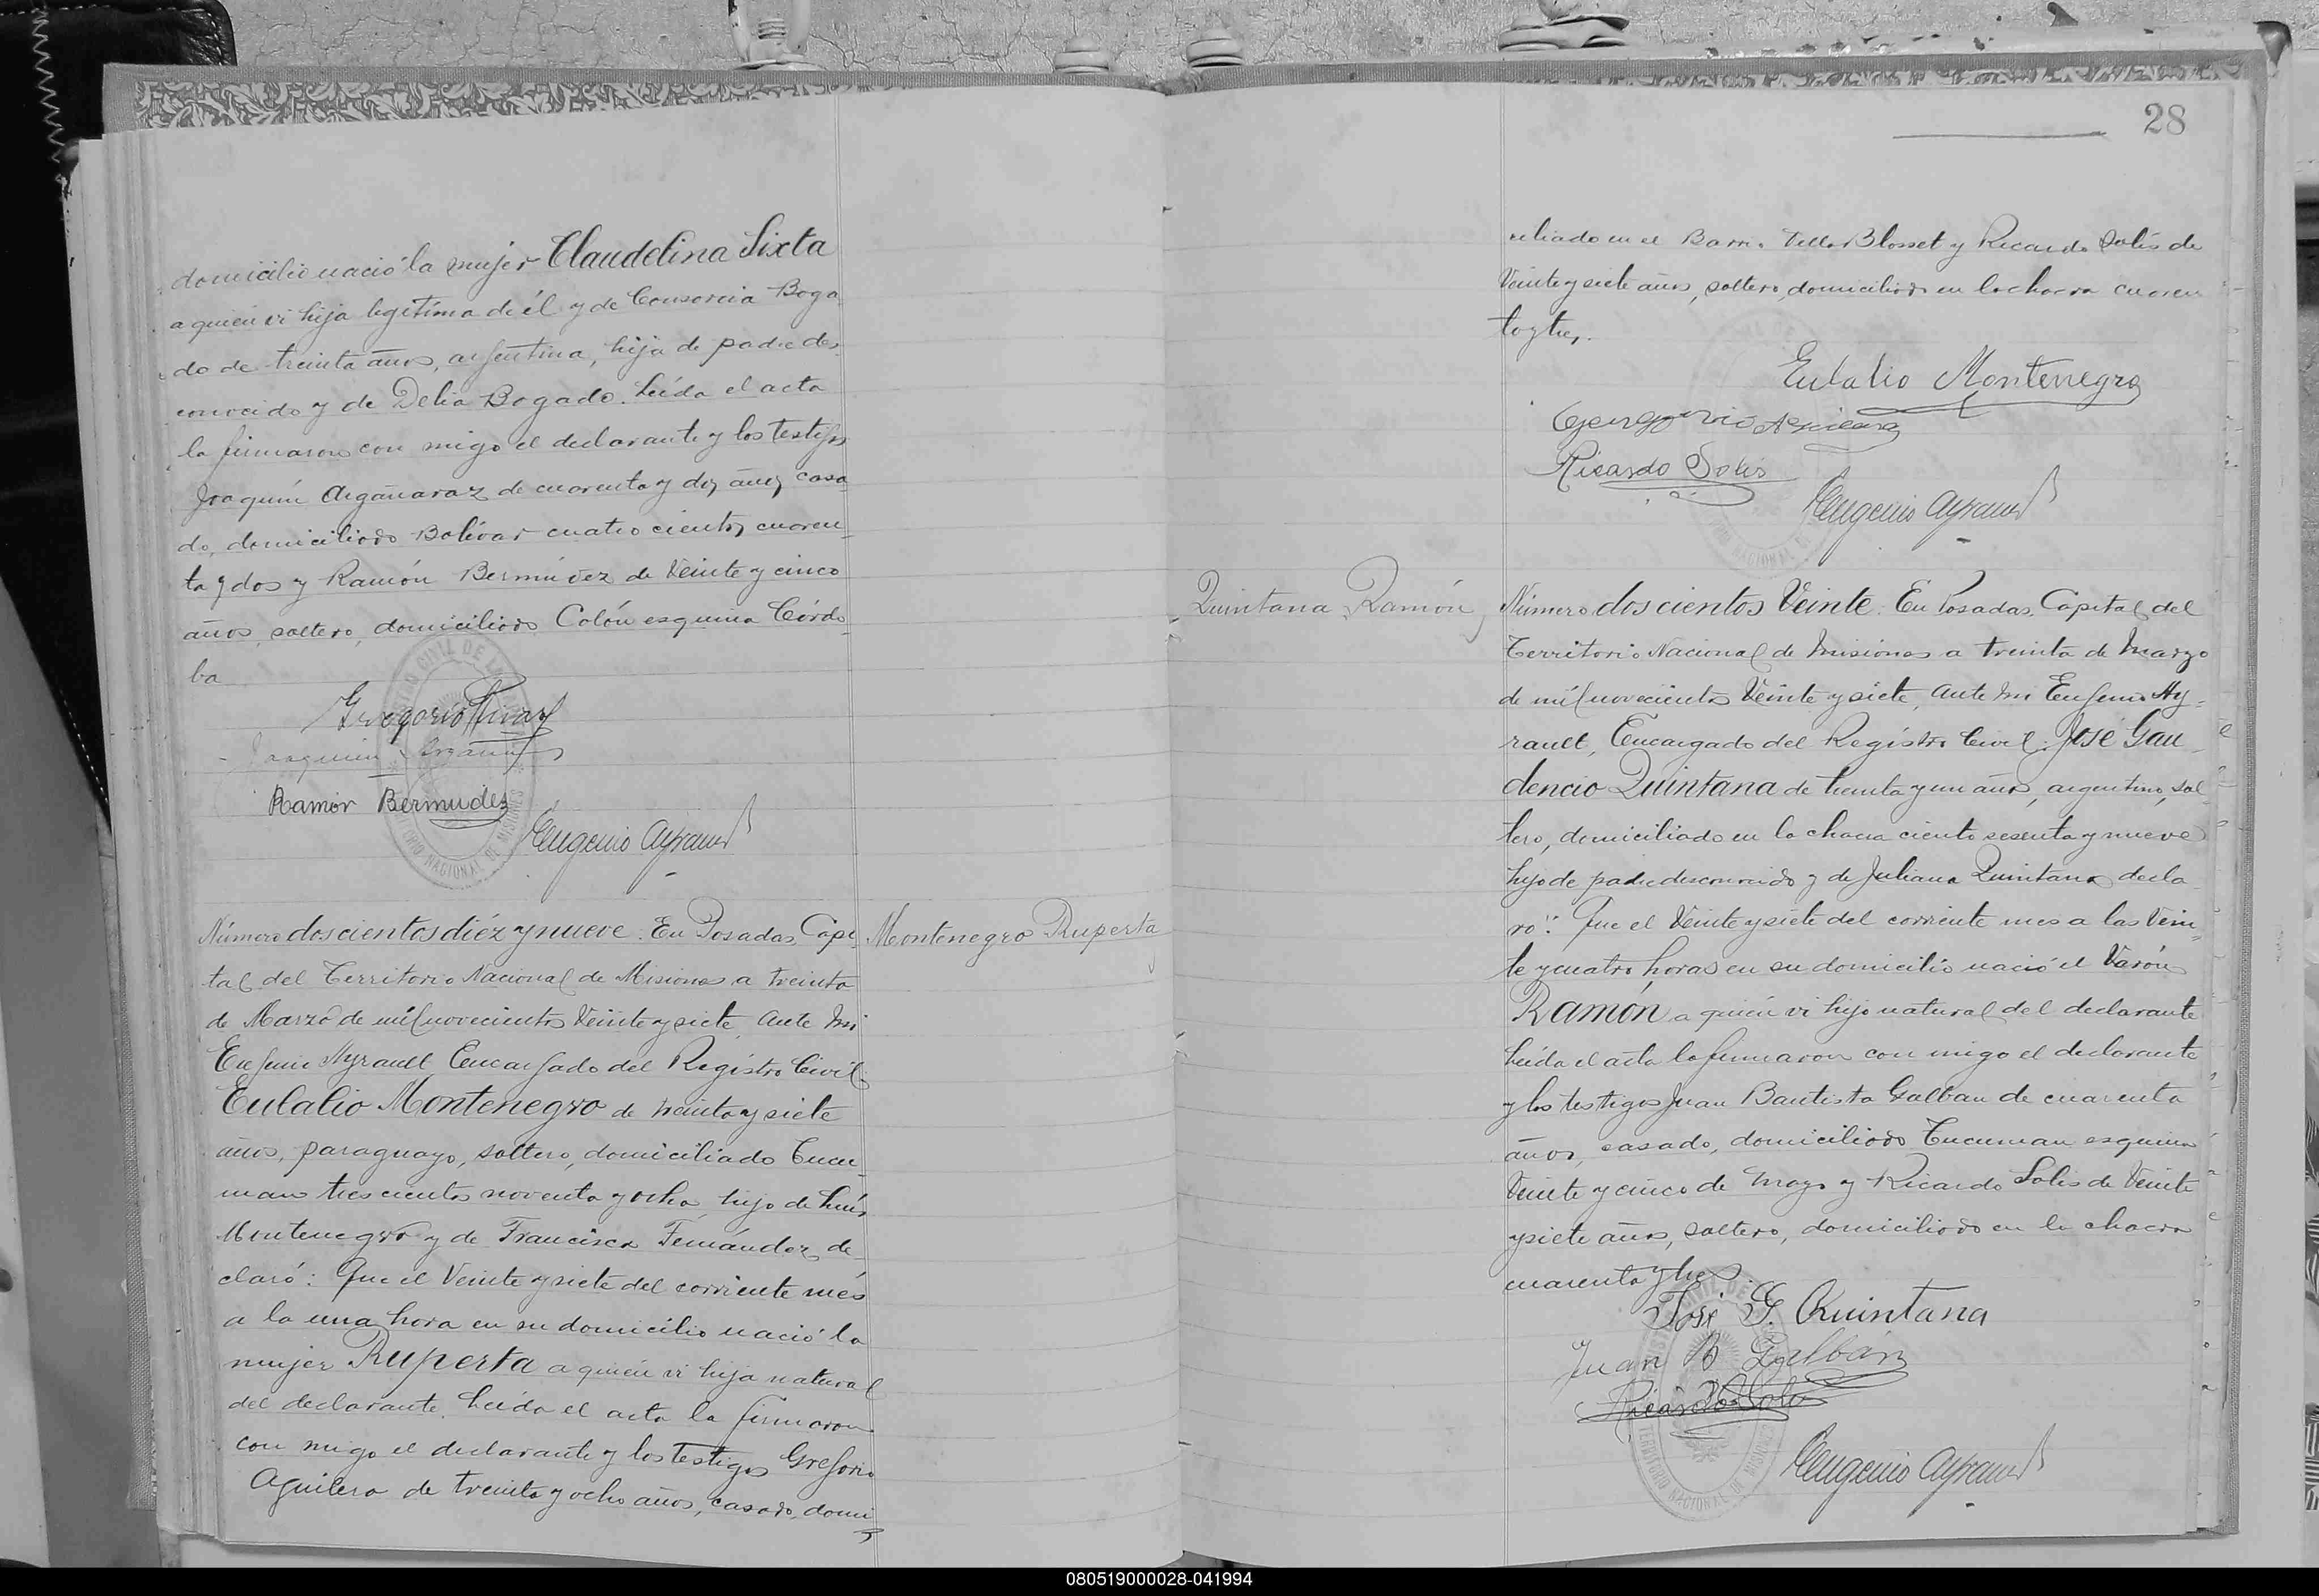 domicilio nació la mujer Claudelina Sixta
a quién vi hija legítima de él y de Consorcia Boga
do de treinta años, argentina, hija de padre des-
conocido y de Delia Bogado. Leída el acta
la firmaron con migo el declarante y los testigos
Joaquín Argañaraz de cuarenta y dos años casa
do, domiciliado Bolívar cuatro cientos cuaren
ta y dos y Ramón Bermúdez de Veinte y cinco
años, soltero, domiciliado Colón esquina Córdo
ba
Gregorio
Joaquín
Ramón Bermudez
Eugenio Ayrault
Número doscientos diéz y nueve. En Posadas, Capi
tal del Territorio Nacional de Misiones a treinta
de Marzo de mil novecientos Veinte y siete, ante mi
Eugenio Ayrault Encargado del Registro Civil:
Eulalio Montenegro de treinta y siete
años, paraguayo, soltero, domiciliado Tucu-
man trescientos noventa y ocho, hijo de Luís
Montenegro y de Francisca Fernández, de-
claró: Que el Veinte y siete del corriente més
a la una hora en su domicilio nació la
mujer Ruperta a quién vi hija natural
del declarante. Leída el acta la firmaron
con migo el declarante y los testigos Gregorio
Aguilera de treinta y ocho años, casado, domi
Montenegro Ruperta
28
ciliado en el Barrio Villa Blosset y Ricardo Solís de
Veinte y siete años, soltero, domiciliado en la chacra cuaren
ta y tres.
Eulalio Montenegro
Gergorio Aguilera
Ricardo Solis
Eugenio Ayrault
Quintana, Ramón
Número dos cientos Veinte. En Posadas, Capital del
Territorio Nacional de Misiones a treinta de Marzo
de mil novecientos Veinte y siete, ante mi Eugenio Ay-
rault, Encargado del Registro Civil: José Gau
dencio Quintana de treinta y un años, argentino, sol
tero, domiciliado en la chacra ciento sesenta y nueve
hijo de padre desconocido y de Juliana Quintana decla
ró: Que el Veinte y siete del corriente mes a las Vein
te y cuatro horas en su domicilio nació el Varón
Ramón a quién vi hijo natural del declarante
Leída el acta la firmaron con migo el declarante
y los testigos Juan Bautista Galban de cuarenta
años, casado, domiciliado Tucuman esquina
Veinte y cinco de Mayo y Ricardo Solis de Veinte
y siete años, soltero, domiciliado en la chacra
cuarenta y tres.
José G. Quintana
Juan B Galbán
Ricardo Solis
Eugenio Ayrault
080519000028-041994